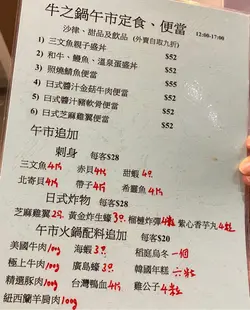 牛之鍋午市定食、便當
沙律、甜品及飲品 (外賣自取九折) 12:00-17:00
1) 三文魚親子盛丼 $52
2) 和牛、鰻魚、溫泉蛋盛丼 $52
3) 照燒鯖魚便當 $55
4) 日式醬汁金菇牛肉便當 $55
5) 日式醬汁豬軟骨便當 $55
6) 日式芝麻雞翼便當 $55
午市追加
刺身 每客$28
三文魚4片 赤貝4片 甜蝦4
北寄貝4片 帶子4片 希靈魚4片
日式炸物 每客$28
芝麻雞翼2只 黃金炸生蠔3 榴槤炸彈4粒 紫心香芋丸4粒
午市火鍋配料追加 每客$20
美國牛肉100g 海蝦3 稻庭烏冬一個
極上牛肉100g 廣島蠔3 韓國年糕六粒
精選豚肉100g 台灣鴨血4片 雞公子4粒
紐西蘭羊肩肉100g